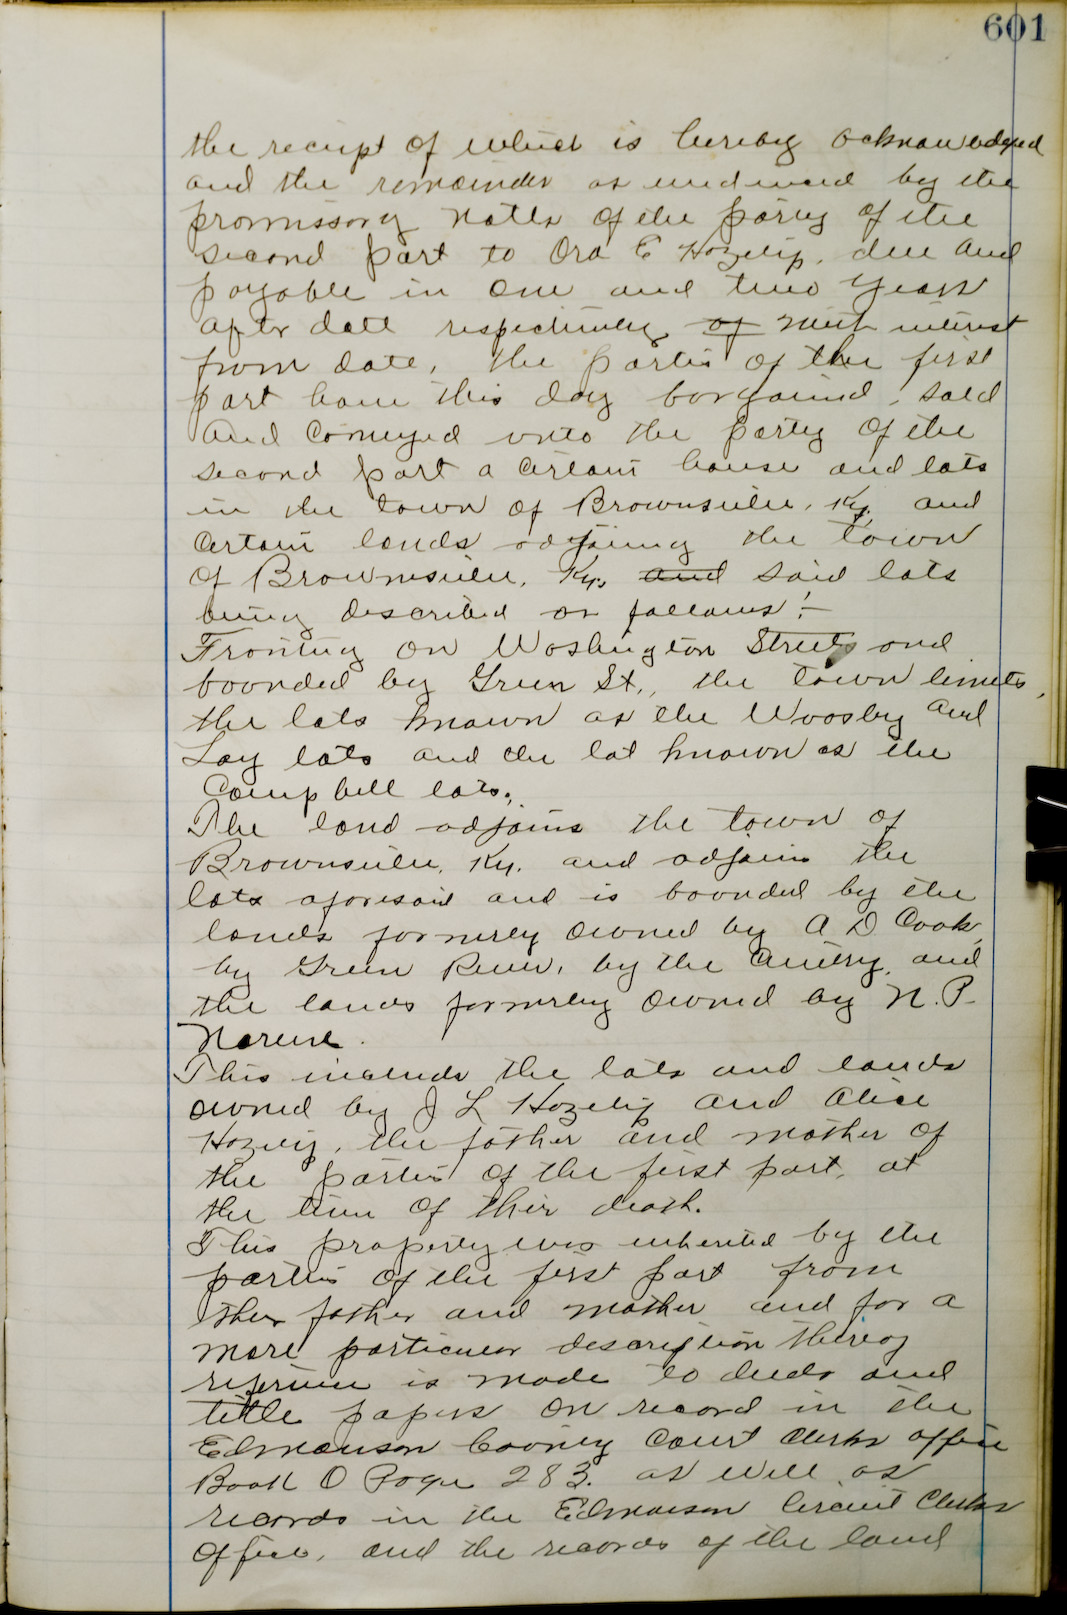 601
the receipt of which is hereby acknowledged
and the remainder as evidenced by the
promissory notes of the party of the
second part to Ora E Hazelip, due and
payable in one and two years
after date respectively of with interest
from date, the parties of the first
part have this day bargained, sold
and conveyed unto the party of the
second part a certain house and lots
in the town of Brownsville, Ky. and
certain lands adjoining the town
of Brownsville, Ky. and said lots
being described as follows:-
Fronting on Washington Streets and
bounded by Green St., the town limits,
the lots known as the Woosley and
Lay lots and the lot known as the
Campbell lots.
The land adjoins the town of
Brownsville, Ky. and adjoins the
lots aforesaid and is bounded by the
lands formerly owned by A D Cook,
by Green River, by the and
the lands formerly owned by N. P.
This includes the lots and lands
owned by J L Hazelip and Alice
Hazelip, the father and mother of
the parties of the first part, at
the time of their death.
This property was inherited by the
parties of the first part from
their father and mother and for a
more particular description thereof
reference is made to deeds and
title papers on record in the
Edmonson County Court Clerks office
Book O Page 283. as well as
records in the Edmonson Circuit Clerks
Office, and the records of the land